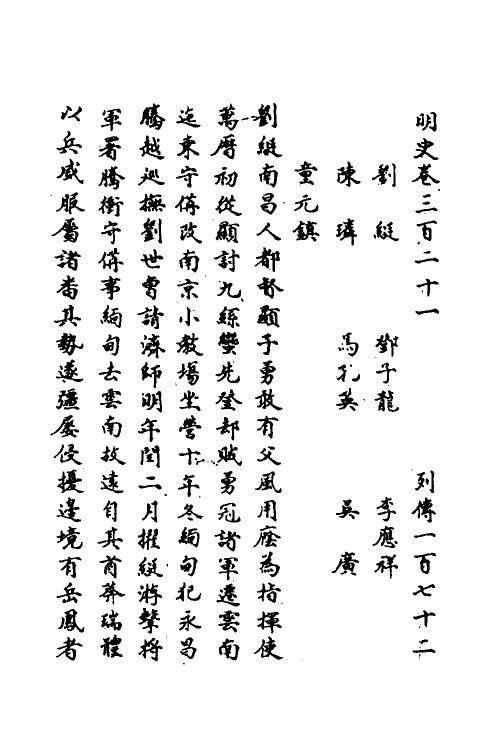 明史卷三百二十一 列傳一百七十二
劉綎 鄧子龍 李應祥
陳璘 馬孔英 吳廣
童元鎮
劉綎南昌人都督顯子勇敢有父風用廕為指揮使
萬厯初從顯討九絲蠻先登却賊勇冠諸軍遷雲南
迤東守俻改南京小教場坐營十年冬緬甸犯永昌
騰越廵撫劉世曾請濟師明年閏二月擢綎游擊將
軍署騰衝守俻事緬甸去雲南故遠自其酋莽瑞體
以兵威服屬諸畨其勢遂彊屡侵擾邉境有岳鳳者